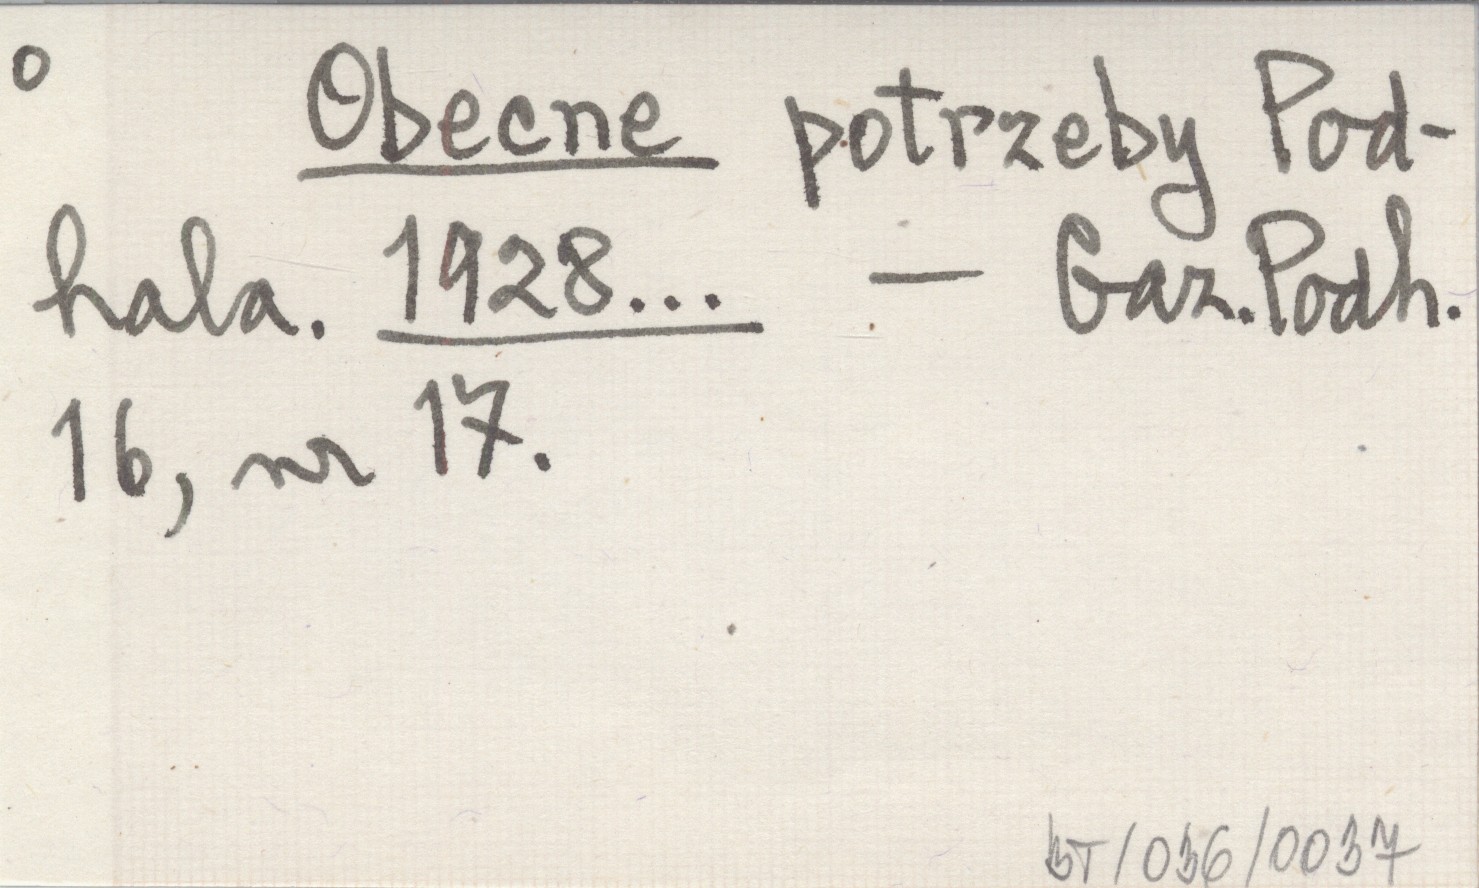 o Obecne potrzeby Pod-
hala. 1928... — Gaz. Podh.
16, nr 17.
BT/036/0037